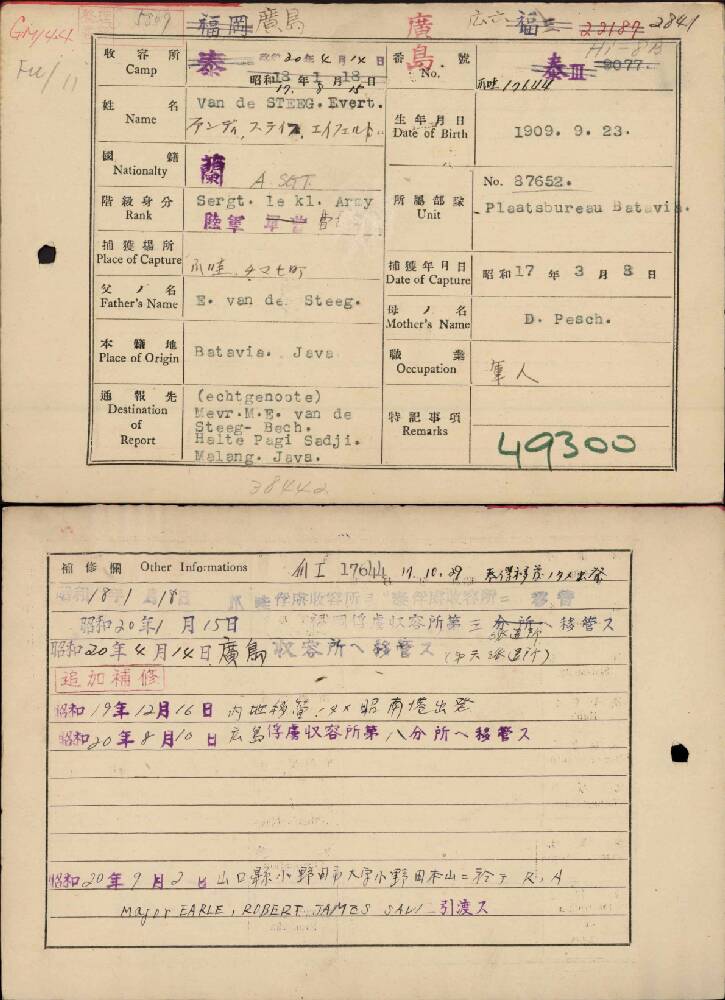 GM44 整理 5809 福岡 廣島 広六 福三 22187 2841
Fu/11 廣島 Hi-8B
收容所 Camp 泰 昭和20年4月14日 番號 No. 泰III 9077.
昭和18.1.18日 爪哇17644
17. 8 15
姓名 Name Van de STEEG. Evert.
生年月日 Date of Birth 1909. 9. 23.
國籍 Nationalty 蘭
A. SGT.
階級身分 Rank Sergt. 1e kl. Army
陸軍
所屬部隊 Unit No. 87652.
Plaatsbureau Batavia.
捕獲場所 Place of Capture 爪哇, チマヒ町
捕獲年月日 Date of Capture 昭和17年3月8日
父ノ名 Father's Name E. van de Steeg.
母ノ名 Mother's Name D. Pesch.
本籍地 Place of Origin Batavia. Java
職業 Occupation 軍人
通報先 Destination of Report (echtgenoote)
Mevr.M.E. van de
Steeg- Bech.
Halte Pagi Sadji.
Malang. Java.
特記事項 Remarks
49300
38442
補修欄 Other Informations 爪I 17644 17.10.29
昭和18年1月18日 爪哇俘虜収容所ニ 泰俘虜収容所ニ 移管
昭和20年1月15日 福岡俘虜収容所第三分所へ移管ス
派遣所
昭和20年4月14日廣島収容所へ移管ス
(第六派遣所)
追加補修
昭和19年12月16日 内地移管ノタメ昭南港出発
昭和20年8月10日 広島俘虜収容所第八分所へ移管ス
昭和20年9月2日山口縣小野田市大字小野田本山ニ於テ R.A
Major EARLE, ROBERT JAMES 引渡ス